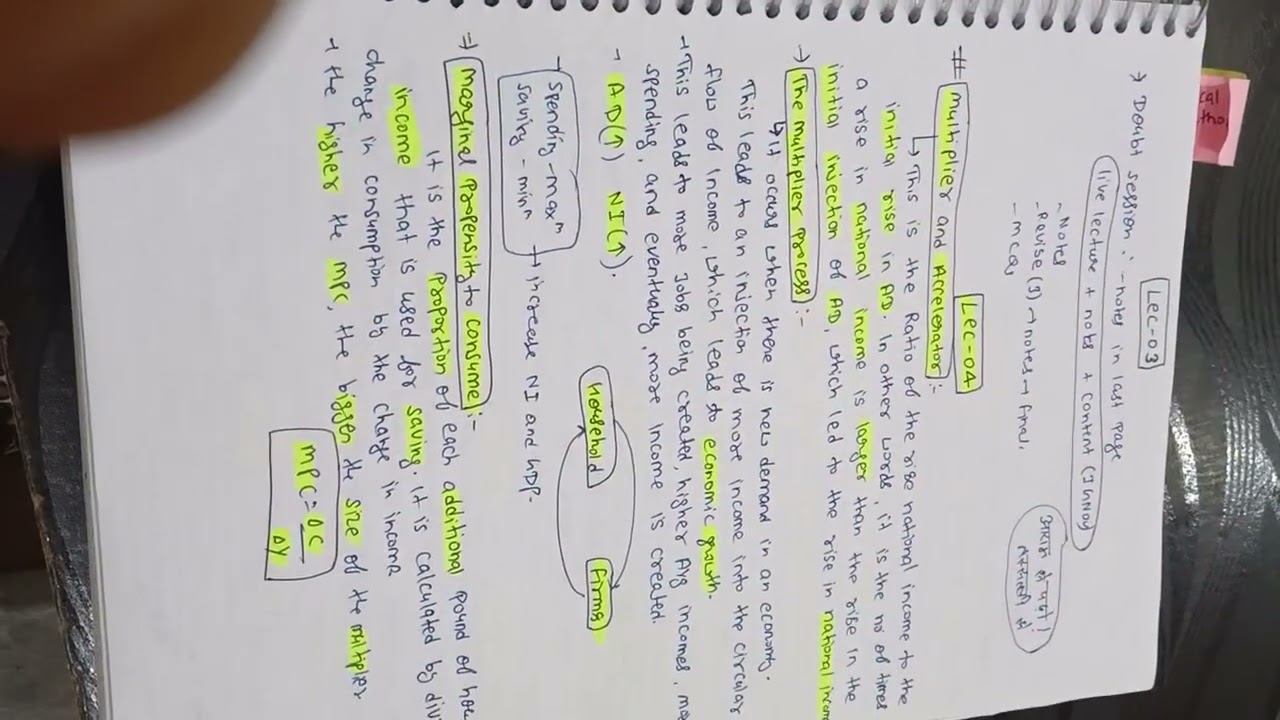 Lec-03
→ Doubt session : - notes in last page
(live lecture + notes + content (IGNOU)
- Notes
- Revise (3) → notes → final,
- mcqs
Lec-04
# multiplier and Accelerator :-
↳ This is the Ratio of the rise national income to the
initial rise in AD. In other words, it is the no of times
a rise in national income is larger than the rise in the
initial injection of AD, which led to the rise in national incom
→ The multiplier process :-
↳ It occurs when there is new demand in an economy.
This leads to an injection of more income into the circular
flow of income, which leads to economic growth.
→ This leads to more Jobs being created, higher Avg incomes, mo
spending, and eventually, more income is created.
→ AD(↑) NI(↑).
Household
Firms
→ Spending - maxᵐ
saving - minᵐ → increase NI and GDP.
⇒ Marginal Propensity to consume :-
It is the Proportion of each additional pound of hou
income that is used for saving. it is calculated by div
change in consumption by the change in income
→ the higher the MPC, the bigger the size of the multiplier
MPC = ΔC
ΔY
cal